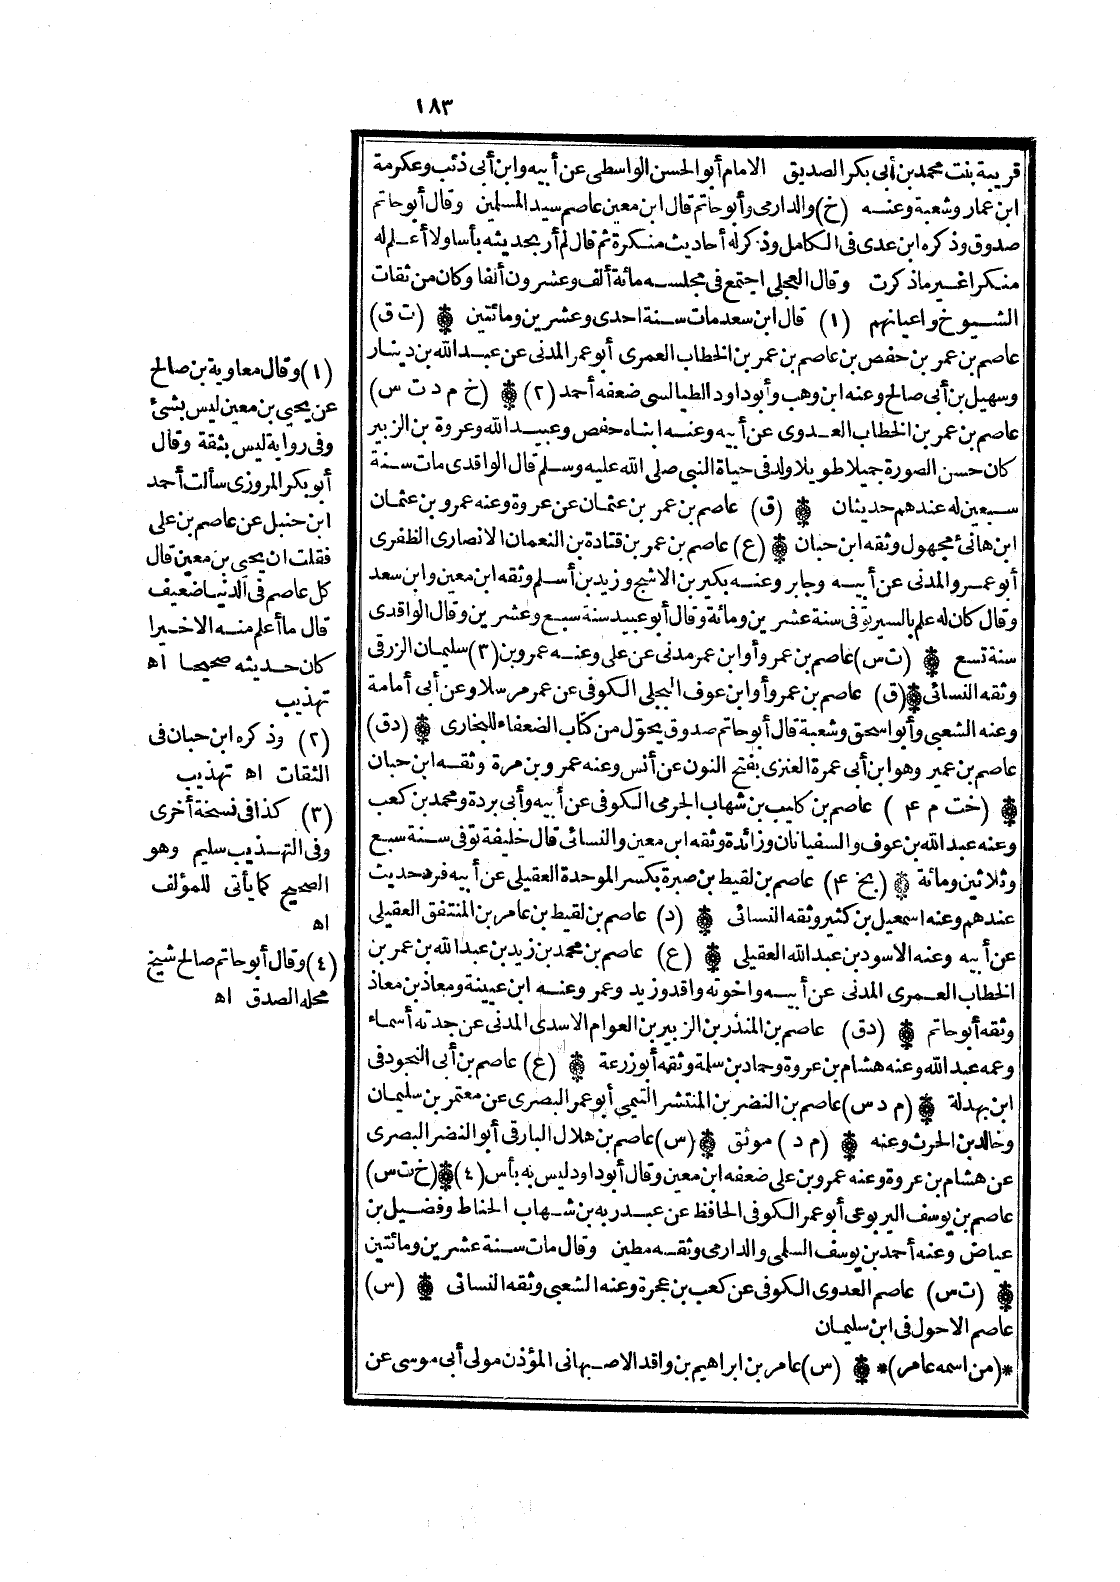 ١٨٣
قريبة بنت محمد بن أبى بكر الصديق الامام أبو الحسن الواسطى عن أبيه وابن أبى ذئب وعكرمة
ابن عمار وشعبة وعنه (خ) والدارمى وأبو حاتم قال ابن معين عاصم سيد المسلمين وقال أبو حاتم
صدوق وذكره ابن عدى فى الكامل وذكر له أحاديث منكرة ثم قال لم أر بحديثه بأسا ولا أعلم له
منكرا غير ما ذكرت وقال العجلى اجتمع فى مجلسه مائة ألف وعشرون ألفا وكان من ثقات
الشيوخ واعيانهم (١) قال ابن سعد مات سنة احدى وعشرين ومائتين ۞ (ت ق)
عاصم بن عمر بن حفص بن عاصم بن عمر بن الخطاب العمرى أبو عمر المدنى عن عبد الله بن دينار
وسهيل بن أبى صالح وعنه ابن وهب وأبو داود الطيالسى ضعفه أحمد (٢) ۞ (خ م د ت س)
عاصم بن عمر بن الخطاب العدوى عن أبيه وعنه ابناه حفص وعبيد الله وعروة بن الزبير
كان حسن الصورة جميلا طويلا ولد فى حياة النبى صلى الله عليه وسلم قال الواقدى مات سنة
سبعين له عندهم حديثان ۞ (ق) عاصم بن عمر بن عثمان عن عروة وعنه عمرو بن عثمان
ابن هانئ مجهول وثقه ابن حبان ۞ (ع) عاصم بن عمر بن قتادة بن النعمان الانصارى الظفرى
أبو عمرو المدنى عن أبيه وجابر وعنه بكير بن الاشج وزيد بن أسلم وثقه ابن معين وابن سعد
وقال كان له علم بالسيرة توفى سنة عشرين ومائة وقال أبو عبيد سنة سبع وعشرين وقال الواقدى
سنة تسع ۞ (ت س) عاصم بن عمرو أو ابن عمر مدنى عن على وعنه عمرو بن (٣) سليمان الزرقى
وثقه النسائى ۞ (ق) عاصم بن عمرو أو ابن عوف البجلى الكوفى عن عمر مرسلا وعن أبى أمامة
وعنه الشعبى وأبو اسحق وشعبة قال أبو حاتم صدوق يحوّل من كتاب الضعفاء للبخارى ۞ (د ق)
عاصم بن عمير وهو ابن أبى عمرة العنزى بفتح النون عن أنس وعنه عمرو بن مرة وثقه ابن حبان
۞ (خت م ۴) عاصم بن كليب بن شهاب الجرمى الكوفى عن أبيه وأبى بردة ومحمد بن كعب
وعنه عبد الله بن عوف والسفيانان وزائدة وثقه ابن معين والنسائى قال خليفة توفى سنة سبع
وثلاثين ومائة ۞ (بخ ۴) عاصم بن لقيط بن صبرة بكسر الموحدة العقيلى عن أبيه فرد حديث
عندهم وعنه اسمعيل بن كثير وثقه النسائى ۞ (د) عاصم بن لقيط بن عامر بن المنتفق العقيلى
عن أبيه وعنه الاسود بن عبد الله العقيلى ۞ (ع) عاصم بن محمد بن زيد بن عبد الله بن عمر بن
الخطاب العمرى المدنى عن أبيه واخوته واقد وزيد وعمر وعنه ابن عيينة ومعاذ بن معاذ
وثقه أبو حاتم ۞ (د ق) عاصم بن المنذر بن الزبير بن العوام الاسدى المدنى عن جدته أسماء
وعمه عبد الله وعنه هشام بن عروة وحماد بن سلمة وثقه أبو زرعة ۞ (ع) عاصم بن أبى النجود فى
ابن بهدلة ۞ (م د س) عاصم بن النضر بن المنتشر التيمى أبو عمر البصرى عن معتمر بن سليمان
وخالد بن الحرث وعنه ۞ (م د) موثق ۞ (س) عاصم بن هلال البارقى أبو النضر البصرى
عن هشام بن عروة وعنه عمرو بن على ضعفه ابن معين وقال أبو داود ليس به بأس (٤) ۞ (خ ت س)
عاصم بن يوسف اليربوعى أبو عمر الكوفى الحافظ عن عبد ربه بن شهاب الحناط وفضيل بن
عياض وعنه أحمد بن يوسف السلمى والدارمى وثقه مطين وقال مات سنة عشرين ومائتين
۞ (ت س) عاصم العدوى الكوفى عن كعب بن عجرة وعنه الشعبى وثقه النسائى ۞ (س)
عاصم الاحول فى ابن سليمان
*(من اسمه عامر)* ۞ (س) عامر بن ابراهيم بن واقد الاصبهانى المؤذن مولى أبى موسى عن
(١) وقال معاوية بن صالح
عن يحيى بن معين ليس بشئ
وفى رواية ليس بثقة وقال
أبو بكر المروزى سألت أحمد
ابن حنبل عن عاصم بن على
فقلت ان يحيى بن معين قال
كل عاصم فى الدنيا ضعيف
قال ما أعلم منه الا خيرا
كان حديثه صحيحا اه
تهذيب
(٢) وذكره ابن حبان فى
الثقات اه تهذيب
(٣) كذا فى نسخة أخرى
وفى التهذيب سليم وهو
الصحيح كما يأتى للمؤلف
اه
(٤) وقال أبو حاتم صالح شيخ
محله الصدق اه